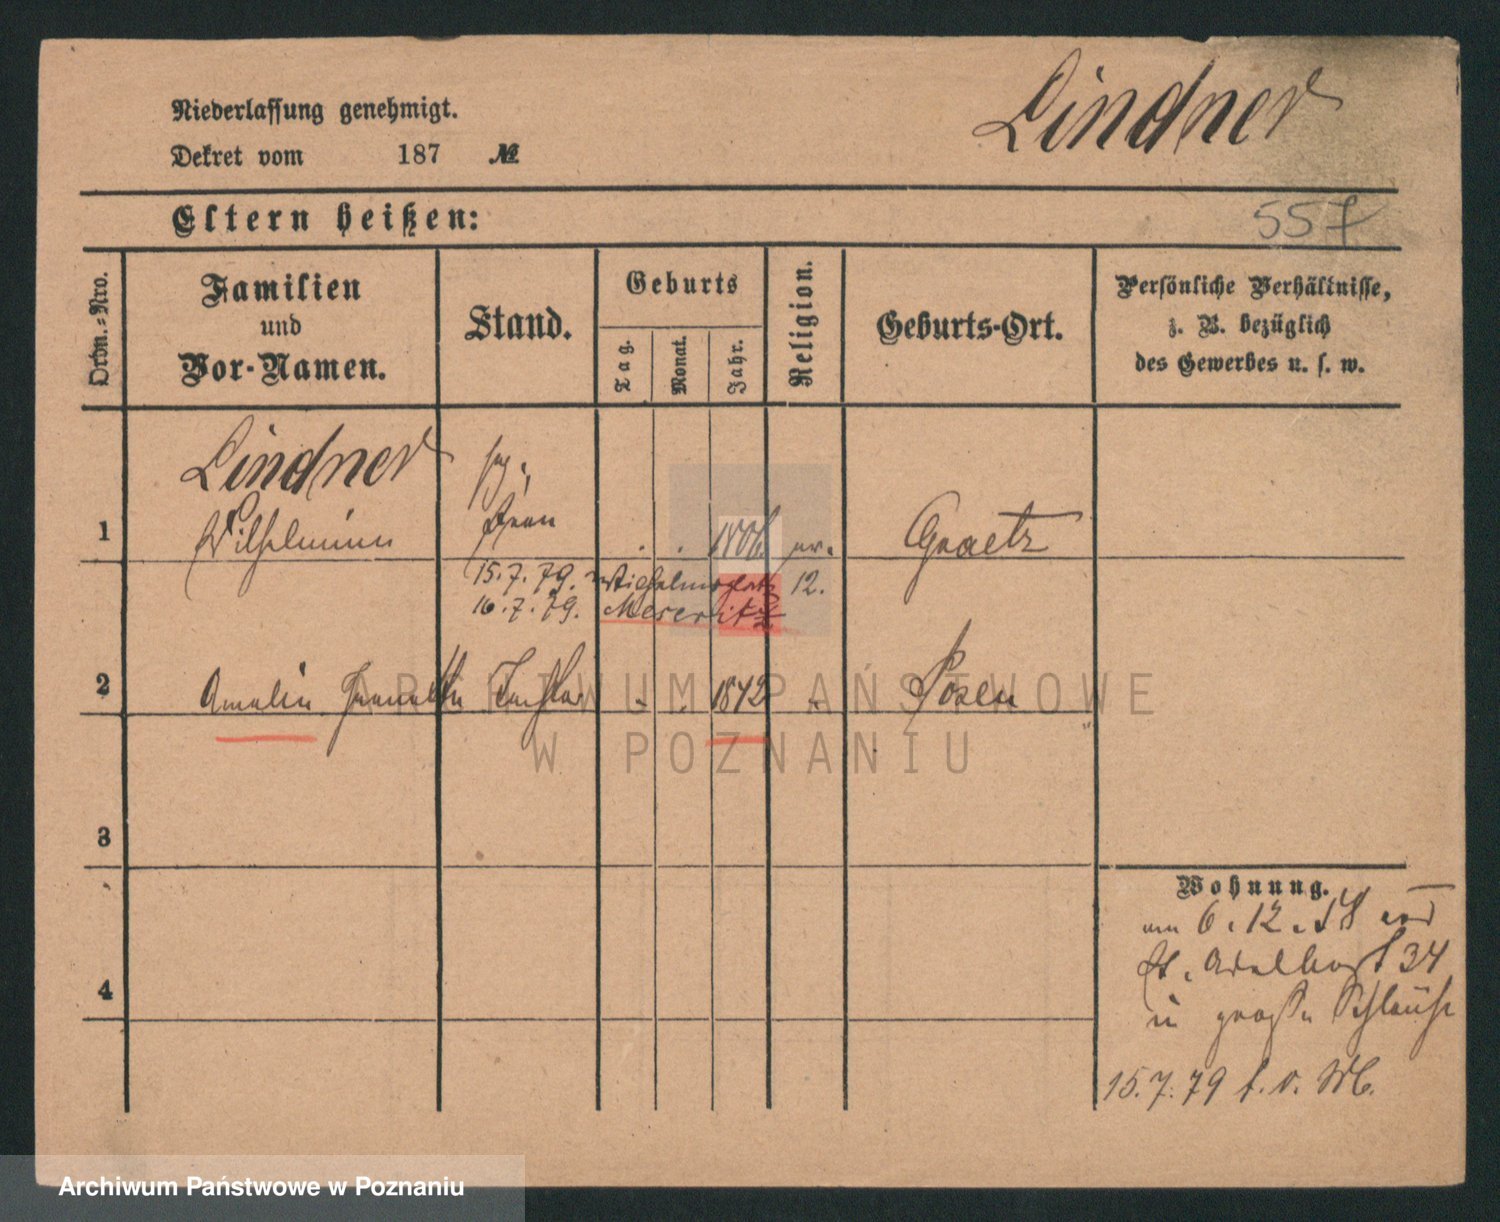 Niederlassung genehmigt.
Lindner
Dekret vom 187 №
Eltern heißen:
557
Ordn.-Nro.
Familien
und
Vor-Namen.
Stand.
Geburts
Tag.
Monat.
Jahr.
Religion.
Geburts-Ort.
Persönliche Verhältnisse,
z. B. bezüglich
des Gewerbes u. s. w.
Lindner
1 Wilhelmine Frau Graetz
15.7.79. Wilhelmsplatz 12.
16.7.79. Meseritz
2 Amalie Tochter 1842 Posen
ARCHIWUM PAŃSTWOWE
W POZNANIU
3
4
Wohnung.
am 6.12.78 von
St. Adalbert 34
in große Schleuse
15.7.79
Archiwum Państwowe w Poznaniu